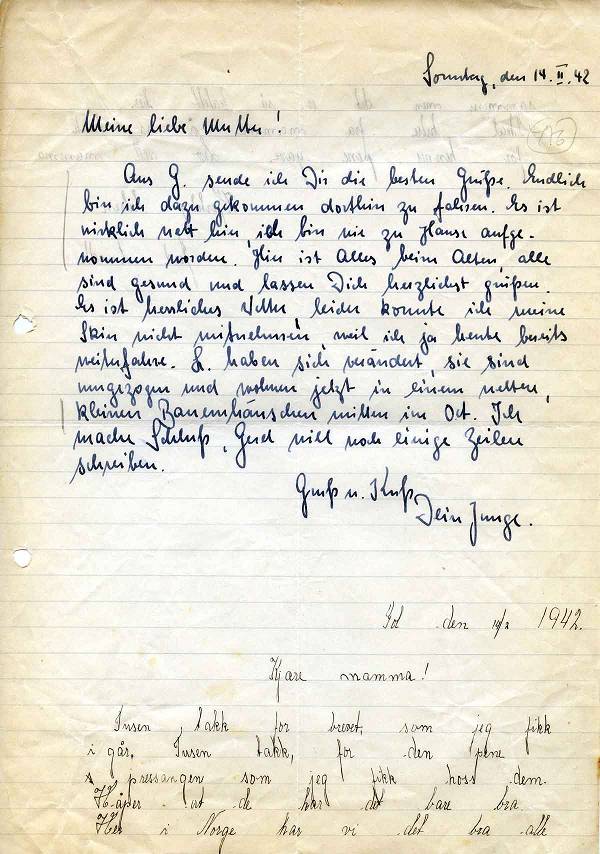 Sonntag, den 14. II. 42
Meine liebe Mutter!
Aus G. sende ich Dir die besten Grüße. Endlich
bin ich dazu gekommen dorthin zu fahren. Es ist
wirklich nett hier, ich bin wie zu Hause aufge-
nommen worden. Hier ist Alles beim Alten, alle
sind gesund und lassen Dich herzlichst grüßen.
Es ist herrliches Wetter, leider konnte ich meine
Skier nicht mitnehmen, weil ich ja heute bereits
weiterfahre. L. haben sich verändert, sie sind
umgezogen und wohnen jetzt in einem netten,
kleinen Bauernhäuschen mitten im Ort. Ich
mache Schluß, Gerd will noch einige Zeilen
schreiben.
Gruß u. Kuß
Dein Junge.
Gol den 14/2 1942.
Kjære mamma!
Tusen takk for brevet, som jeg fikk
i går. Tusen takk, for den pene
pressangen som jeg fikk hoss dem.
Håper at de har det bare bra.
Her i Norge har vi det bra alle